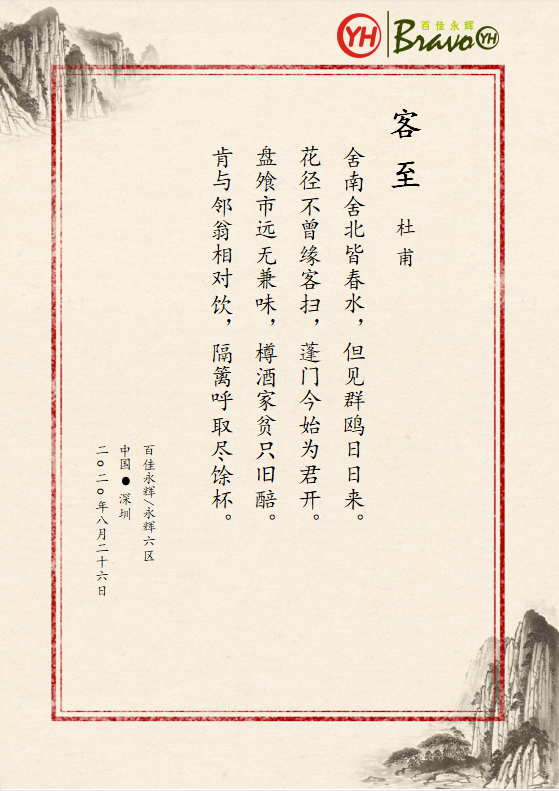 YH
百佳永辉
Bravo YH
客至
杜甫
舍南舍北皆春水，但见群鸥日日来。
花径不曾缘客扫，蓬门今始为君开。
盘飧市远无兼味，樽酒家贫只旧醅。
肯与邻翁相对饮，隔篱呼取尽馀杯。
百佳永辉/永辉六区
中国●深圳
二〇二〇年八月二十六日